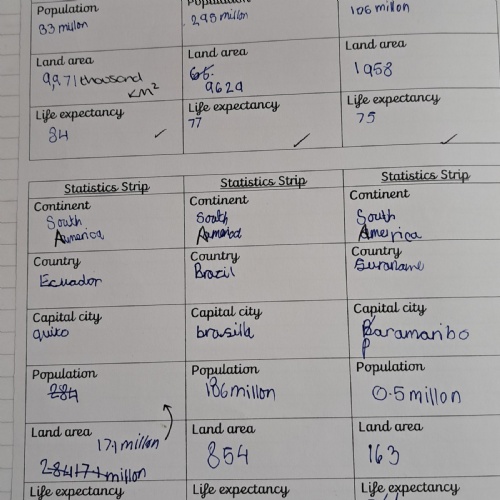 Population Population
33 millon 295 millon 106 millon
Land area Land area Land area
9,971 thousand km² 65. 9629 1958
Life expectancy Life expectancy Life expectancy
84 77 75
Statistics Strip Statistics Strip Statistics Strip
Continent Continent Continent
South South South
America America America
Country Country Country
Ecuador Brazil Suraname
Capital city Capital city Capital city
quito brasilla Paramaribo
Population Population Population
284 186 millon 0.5 millon
Land area Land area Land area
17.1 millon 854 163
millon
Life expectancy Life expectancy Life expectancy